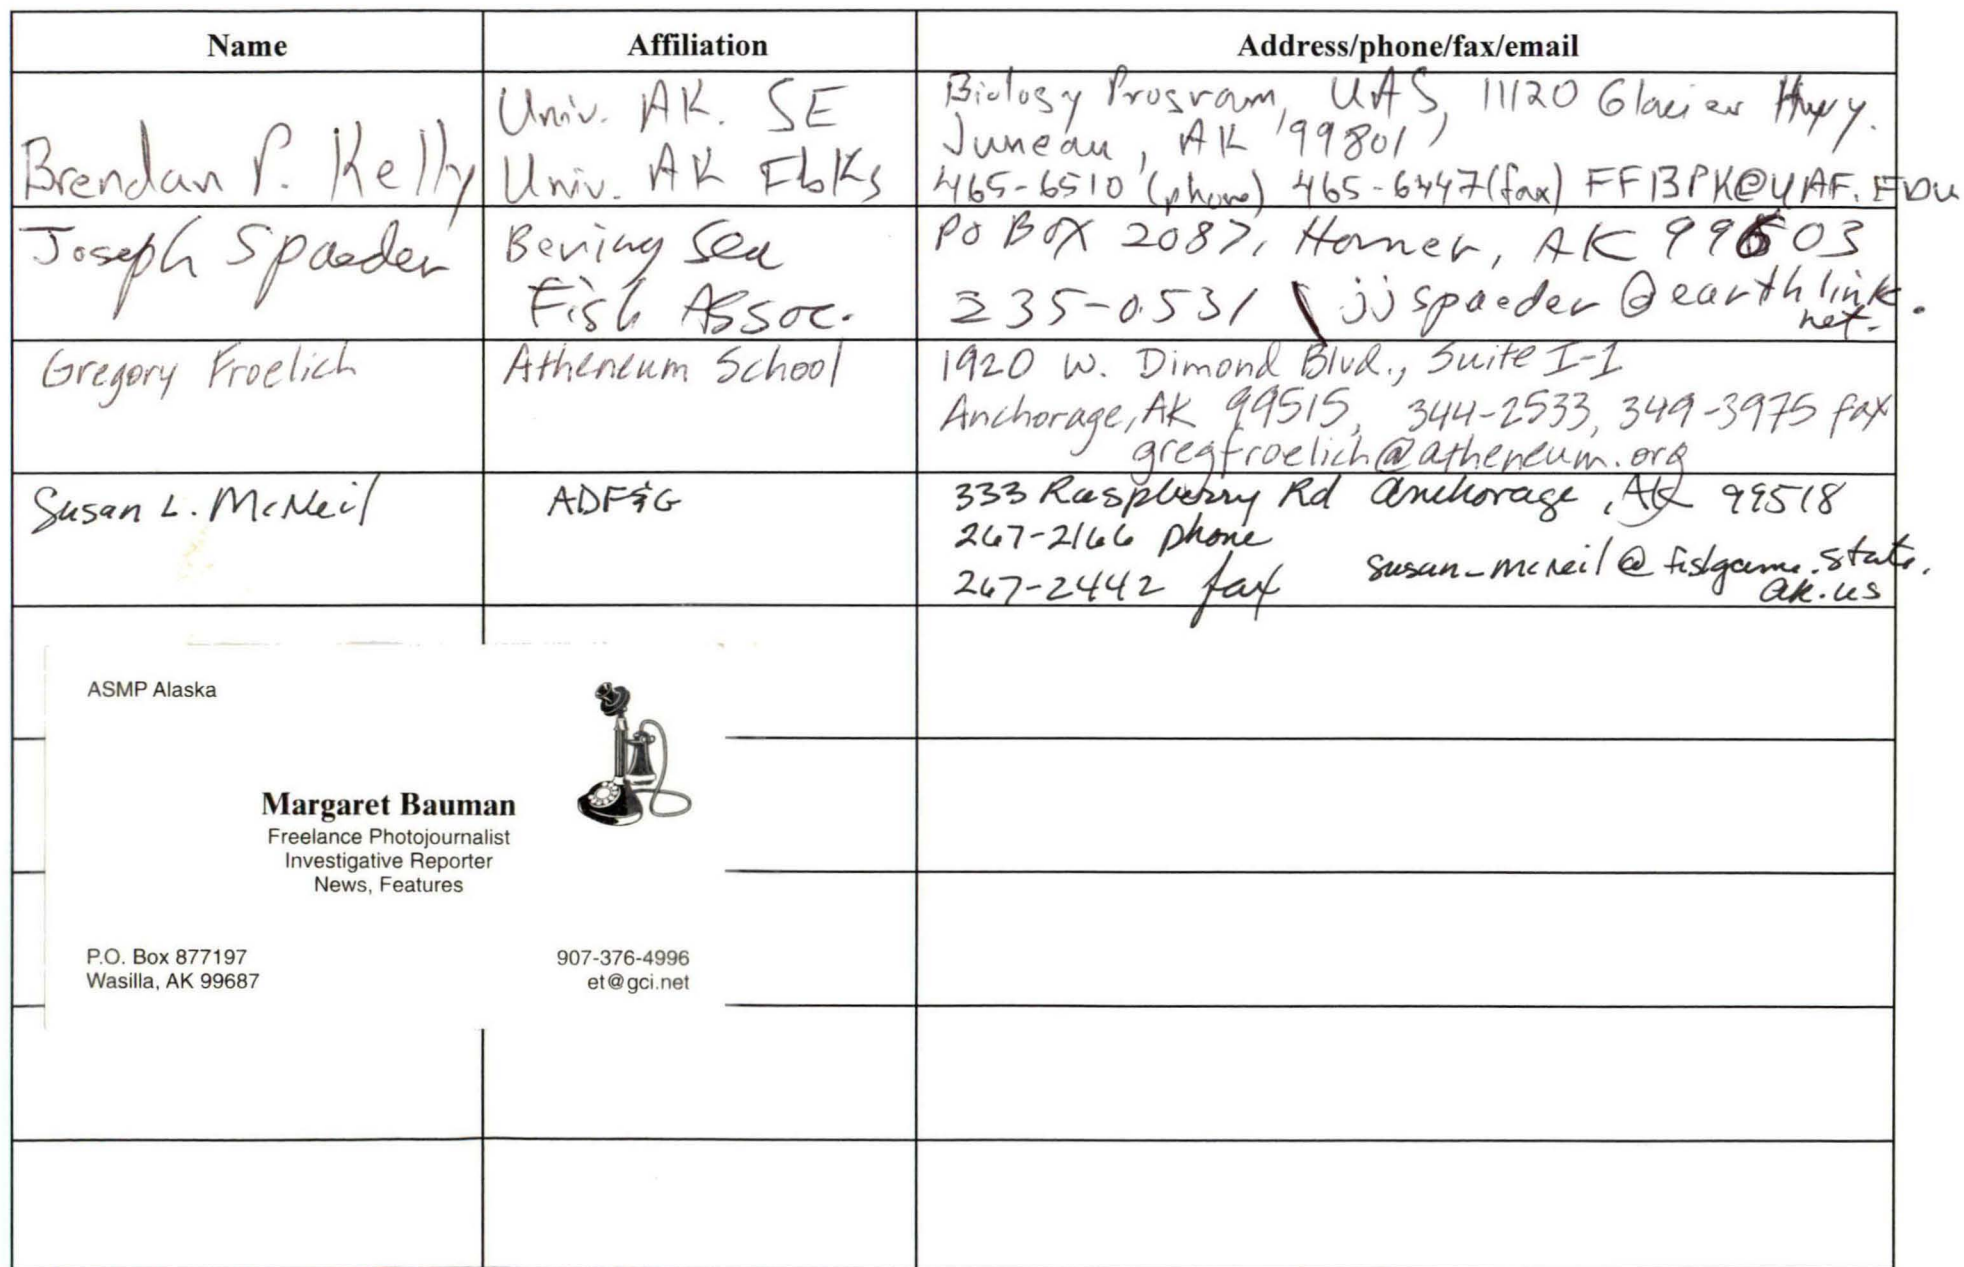 Name Affiliation Address/phone/fax/email
Brendan P. Kelly
Univ. AK. SE
Univ. AK Fbks
Biology Program, UAS, 11120 Glacier Hwy.
Juneau, AK 99801
465-6510 (phone) 465-6447(fax) FFBPK@UAF.EDU
Joseph Spaeder
Bering Sea
Fish Assoc.
PO BOX 2087, Homer, AK 99603
235-0531 \ jjspaeder@earthlink.
net.
Gregory Froelich
Atheneum School
1920 W. Dimond Blvd., Suite I-1
Anchorage, AK 99515, 344-2533, 349-3975 fax
gregfroelich@atheneum.org
Susan L. McNeil
ADF&G
333 Raspberry Rd Anchorage, AK 99518
267-2166 phone
267-2442 fax susan_mcneil@fishgame.state.
ak.us
ASMP Alaska
Margaret Bauman
Freelance Photojournalist
Investigative Reporter
News, Features
P.O. Box 877197
Wasilla, AK 99687
907-376-4996
et@gci.net